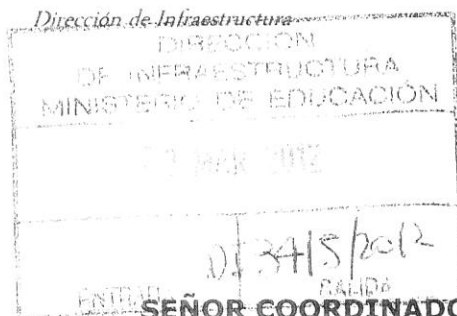 Dirección de Infraestructura
DIRECCION
DE INFRAESTRUCTURA
MINISTERIO DE EDUCACIÓN
MAR 2012
ENTRADA SALIDA
SEÑOR COORDINADO